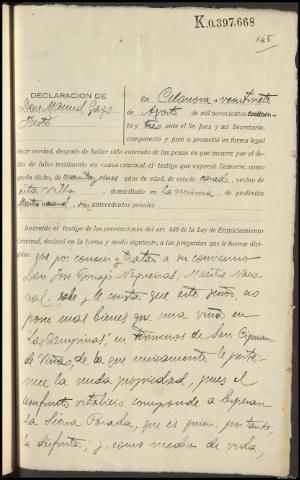 K.0.397.668
145
DECLARACION DE
Don Manuel
En Celanova a veintisiete
de Agosto de mil novecientos cuaren-
ta y tres ante el Sr. Juez y mi Secretario,
compareció y juró o prometió en forma legal
decir verdad, después de haber sido enterado de las penas en que incurre por el de-
lito de falso testimonio en causa criminal, el testigo que expresó llamarse, como
queda dicho, de cuarenta y cinco años de edad, de estado casado, vecino de
esta villa, domiciliado en la misma, de profesión
Maestro nacional, sin antecedentes penales
Instruído el testigo de las prevenciones del art. 446 de la Ley de Enjuiciamiento
Criminal, declaró en la forma y modo siguiente, a las preguntas que le fueron diri-
gidas:
que por conocer y tratar a su convecino
Don José González Maestro Nacio-
nal, sabe y le consta que este señor, no
posee mas bienes que una viña en
"Las Campinas", en términos de San Ciprian
de Viñas, de la que unicamente le perte-
nece la nuda propiedad, pues el
usufruto vitalicio corresponde a Esperan-
za Parada, que es quien, por tanto,
la disfruta; y, como medios de vida,